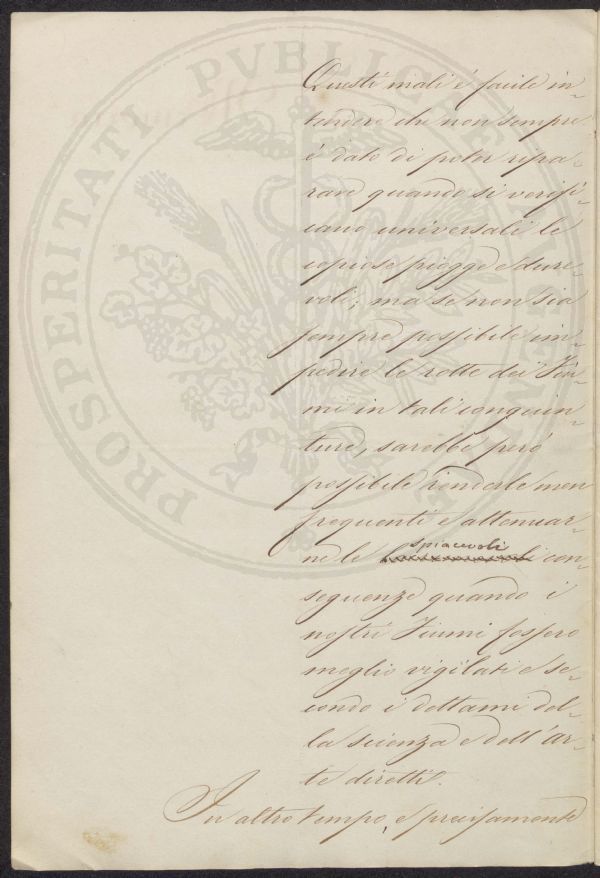 Questi mali è facile in-
tendere che non sempre
è dato di poter ripa-
rare quando si verifi-
cano universali le
copiose piogge e dure-
voli; ma se non sia
sempre possibile im-
pedire le rotte dei Fiu-
mi in tali congiun-
ture, sarebbe però
possibile renderle men
frequenti e attenuar-
ne le spiacevoli con-
seguenze quando i
nostri Fiumi fossero
meglio vigilati e se-
condo i dettami del-
la scienza e dell'ar-
te diretti.
In altro tempo, e precisamente
PROSPERITATI PVBLICAE AVGENDAE